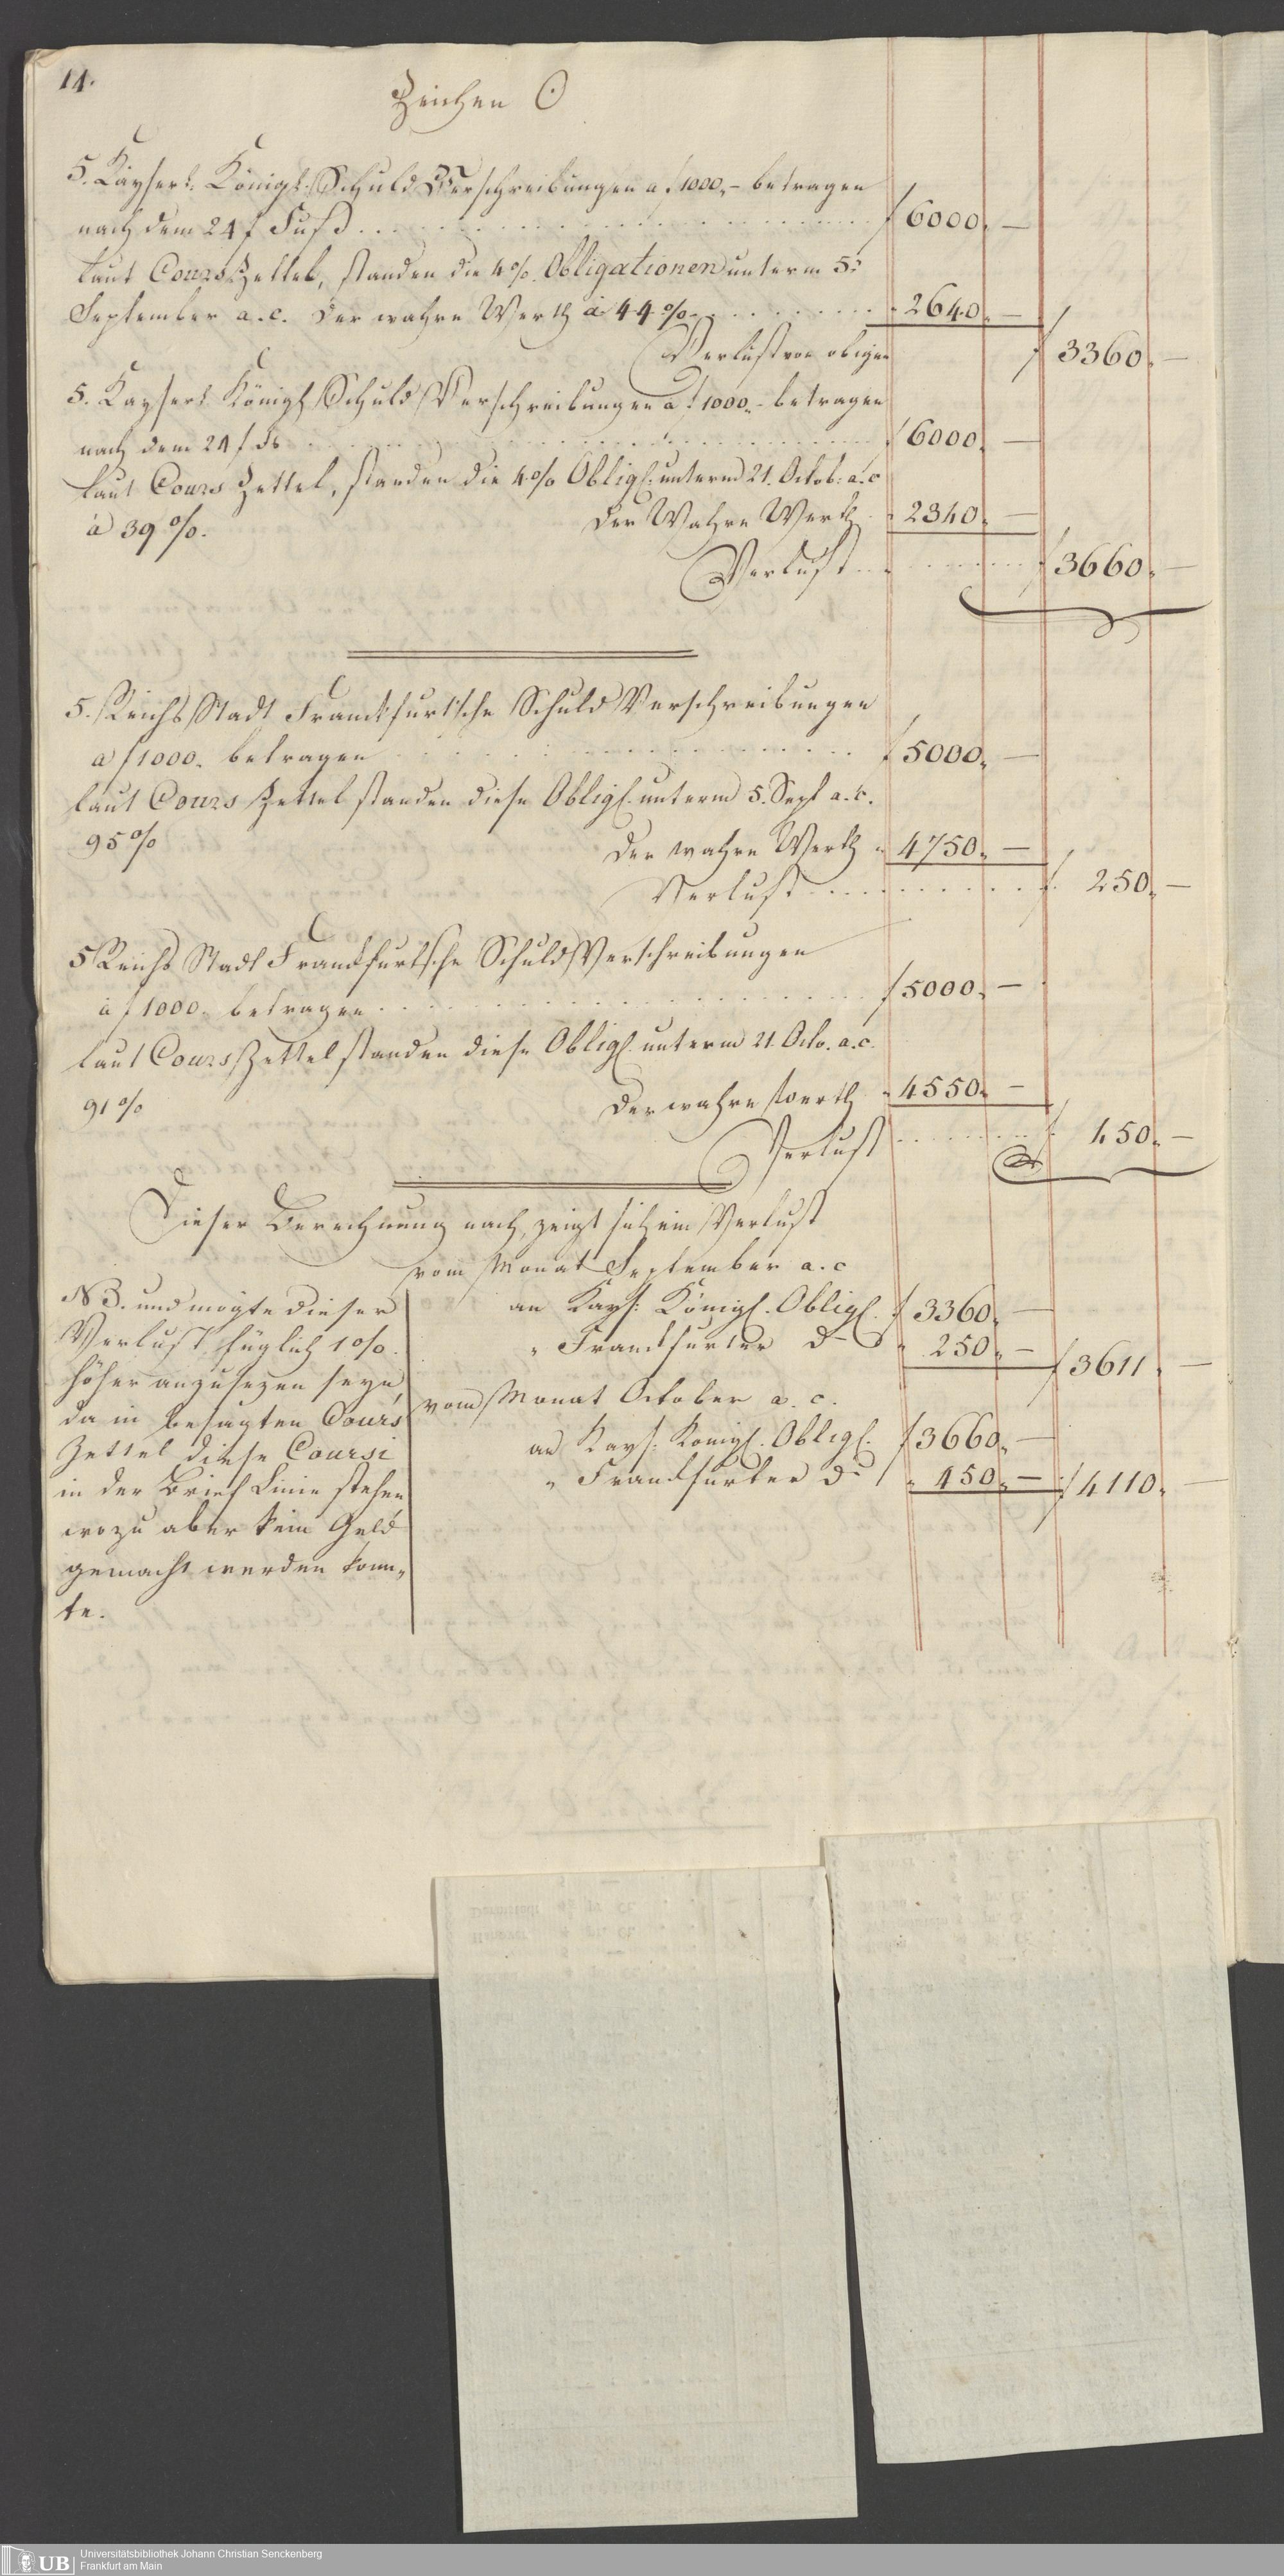 14.
Zeichen ☉
5. Kayserl. Königl. Schuld Verschreibungen a f 1000,- betragen
nach dem 24 f Fuß . . . . . f 6000. —
laut Cours Zettel, standen die 4%. Obligationen unterm 5t
September a. c. der wahre Werth à 44 %. . . . . . " 2640. —
Verlust von obigen f 3360. —
5. Kayserl Königl Schuld Verschreibungen a f 1000.- betragen
nach dem 24 f ds . . . . . f 6000. —
laut Cours Zettel, standen die 4% Oblig. unterm 21. Octob. a. c
à 39 %. der Wahre Werth " 2340. —
Verlust . . . . . f 3660. —
5. Reichs Stadt Franckfurtsche Schuld Verschreibungen
a f 1000. betragen . . . . . f 5000. —
laut Cours Zettel standen diese Oblig. unterm 5. Sept a. c.
95 % der wahre Werth " 4750. —
Verlust . . . . . f. 250. —
5 Reichs Stadt Franckfurtsche Schuld Verschreibungen
à f 1000. betragen . . . . . f 5000. —
laut Cours Zettel standen diese Oblig. unterm 21. Octo. a. c.
91 % der wahre Werth " 4550. —
Verlust . . . . . f. 450. —
Dieser Berechnung nach, zeigt sich ein Verlust
vom Monat September a. c
an Kays: Königl. Oblig. f 3360. —
" Franckfurter do " 250. — f 3611. —
vom Monat October a. c.
an Kays: Königl. Oblig. f 3660. —
" Franckfurter do " 450. — f 4110. —
NB. und mögte dieser
Verlust füglich 1 %.
höher anzusezen seyn,
da in besagten Cours
Zettel diese Coursi
in der Brief Linie stehen
wozu aber kein Geld
gemacht werden konn„
te.
Darmstadt
Hanover
UB
Universitätsbibliothek Johann Christian Senckenberg
Frankfurt am Main